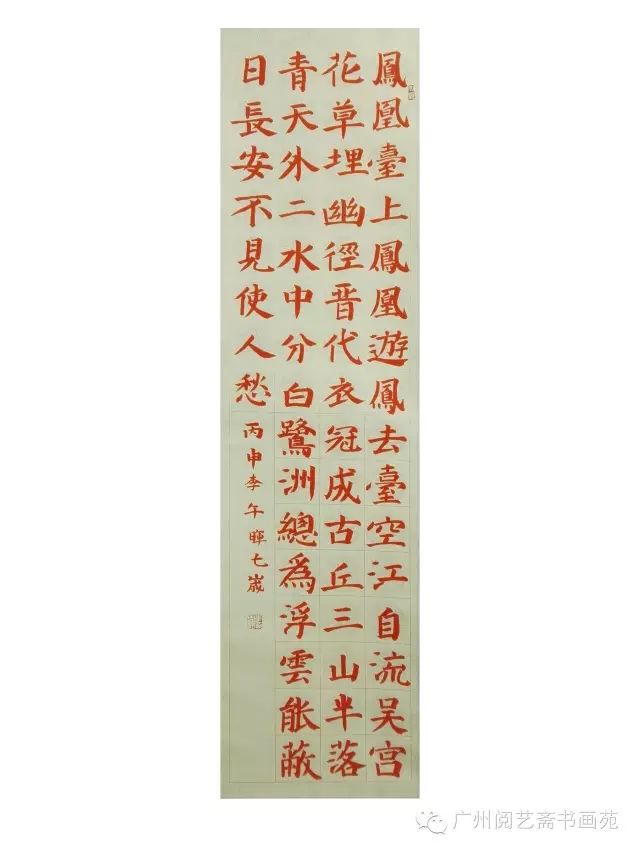 鳳凰臺上鳳凰遊鳳去臺空江自流吴宫
花草埋幽徑晋代衣冠成古丘三山半落
青天外二水中分白鷺洲總爲浮雲能蔽
日長安不見使人愁
丙申李午暉七歲
广州阅艺斋书画苑